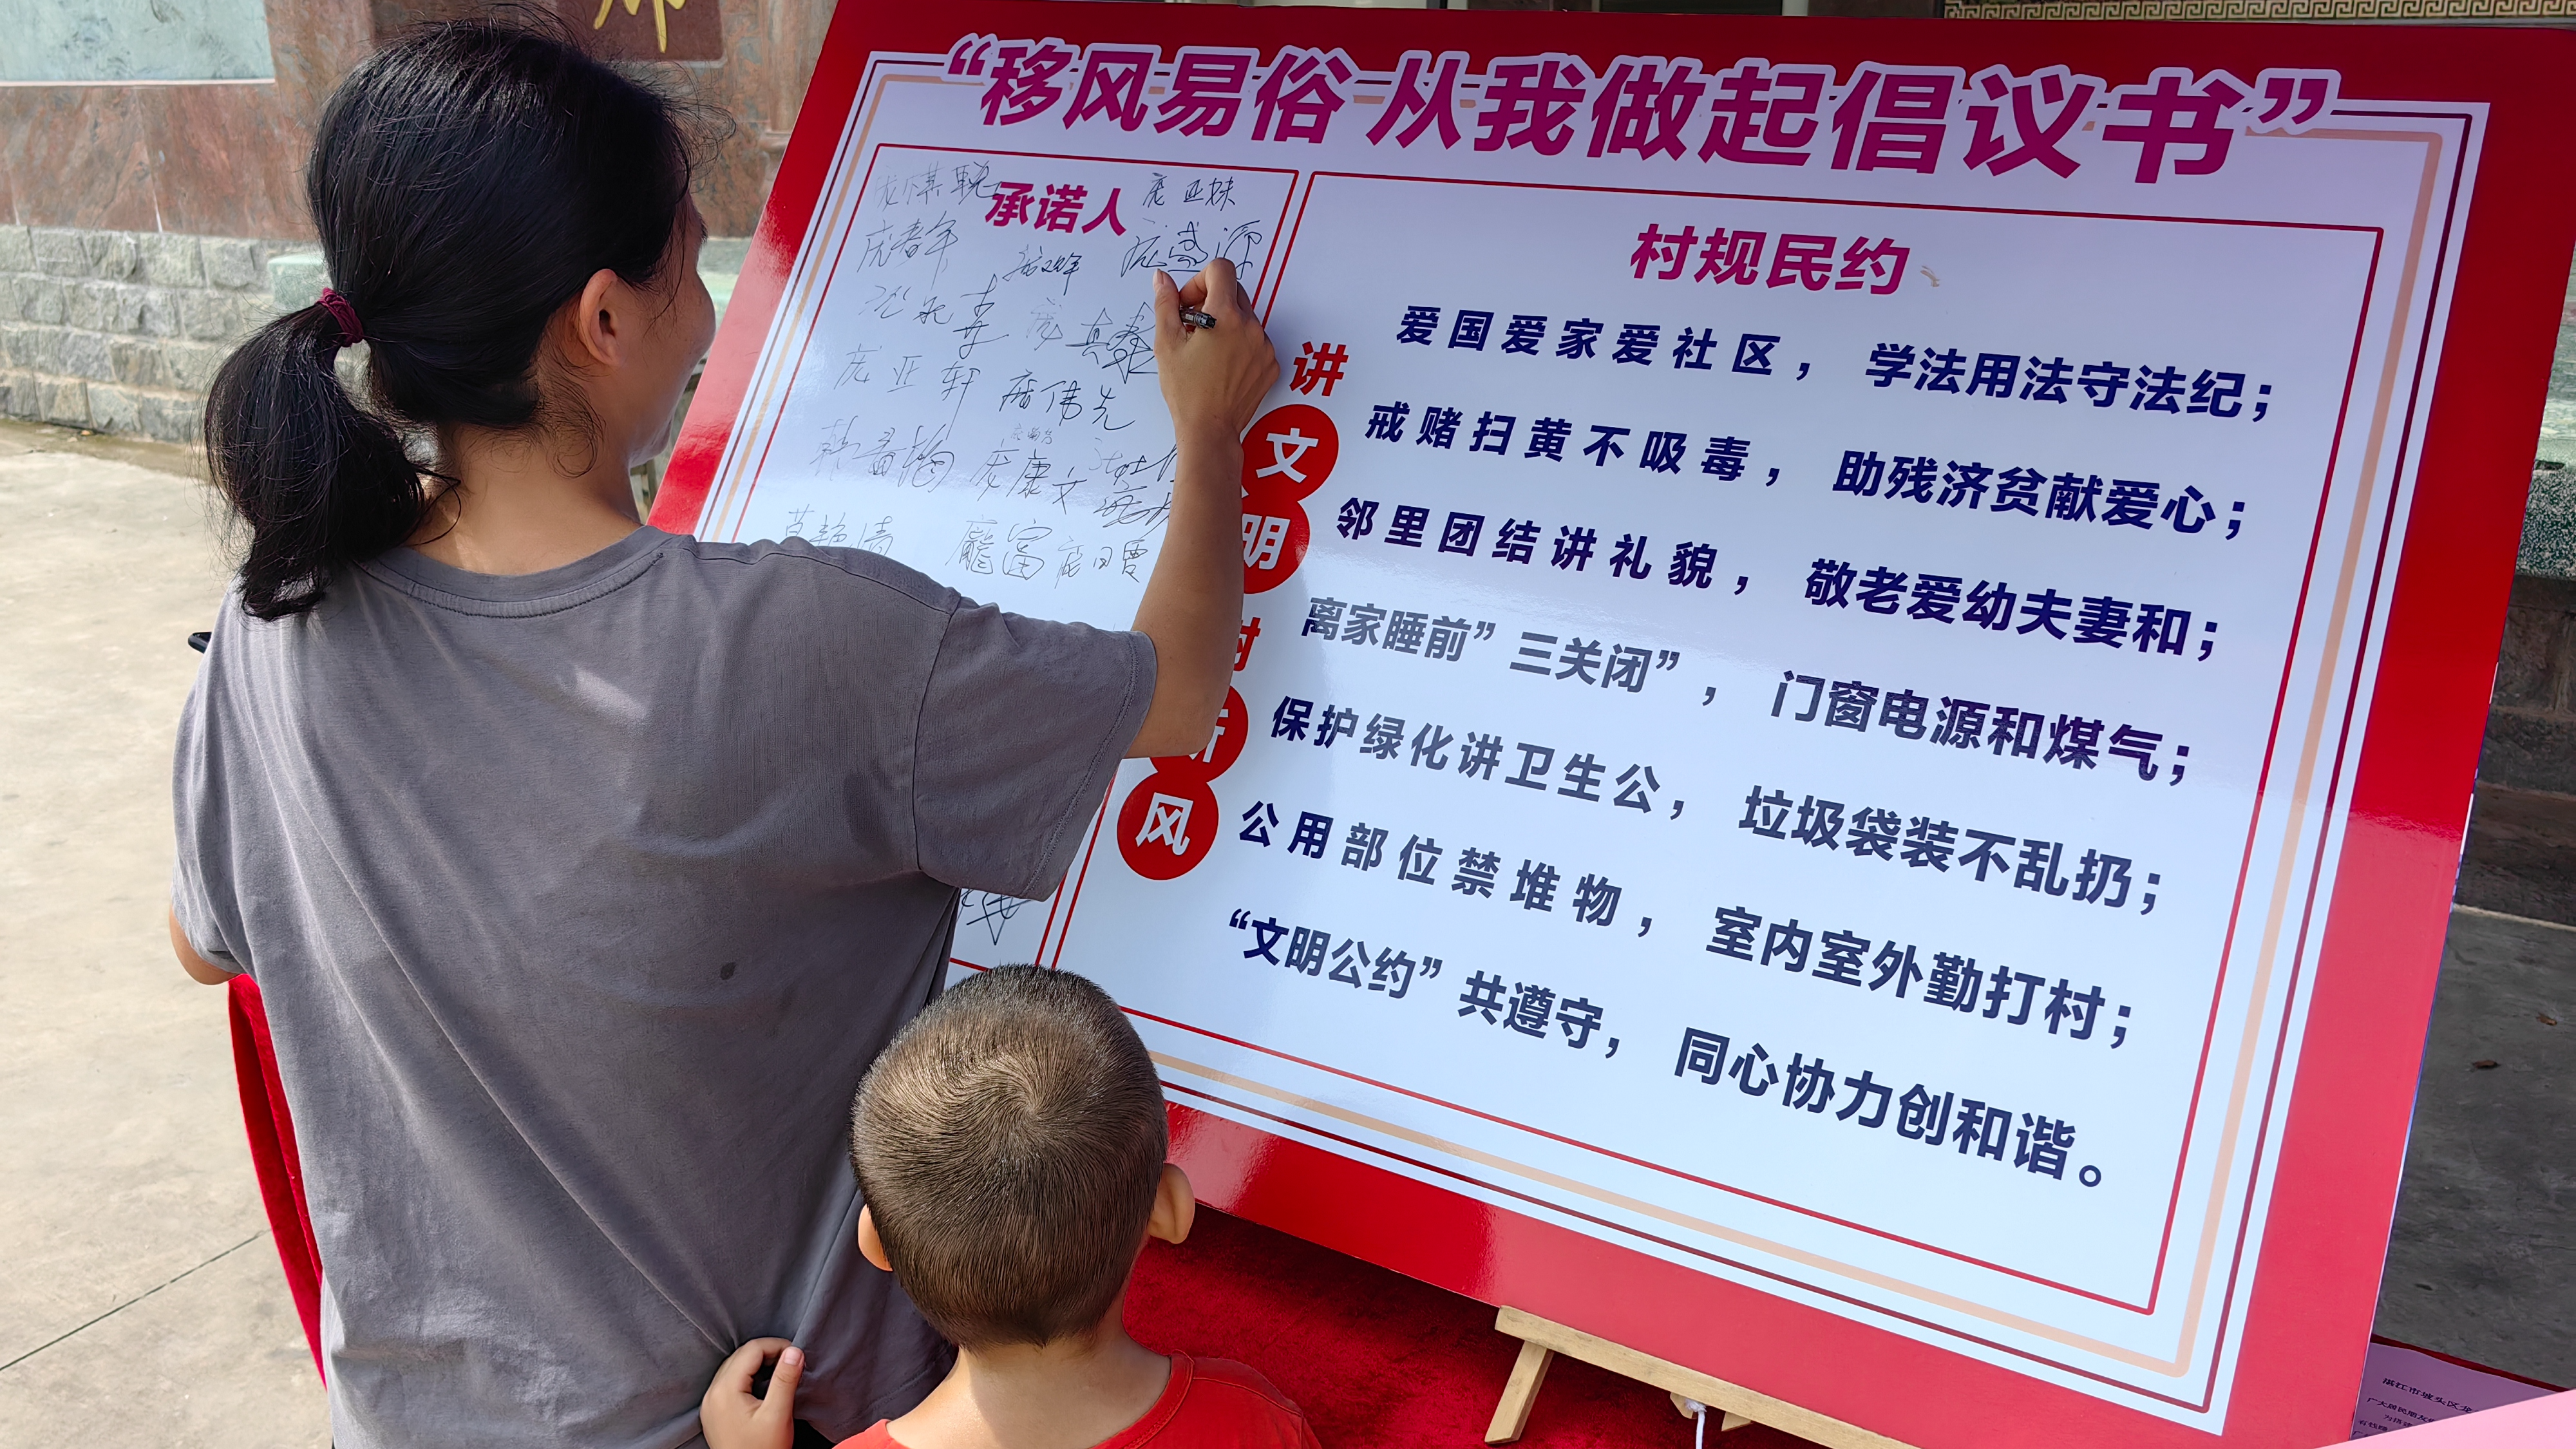 “移风易俗 从我做起倡议书”
承诺人
庞亚妹
庞春年
庞盛源
庞亚轩
庞伟先
庞康文
龐富
村规民约
讲
文
明
树
新
风
爱国爱家爱社区， 学法用法守法纪；
戒赌扫黄不吸毒， 助残济贫献爱心；
邻里团结讲礼貌， 敬老爱幼夫妻和；
离家睡前”三关闭”， 门窗电源和煤气；
保护绿化讲卫生公， 垃圾袋装不乱扔；
公用部位禁堆物， 室内室外勤打村；
“文明公约”共遵守， 同心协力创和谐。
湛江市坡头区龙
广大居民朋友